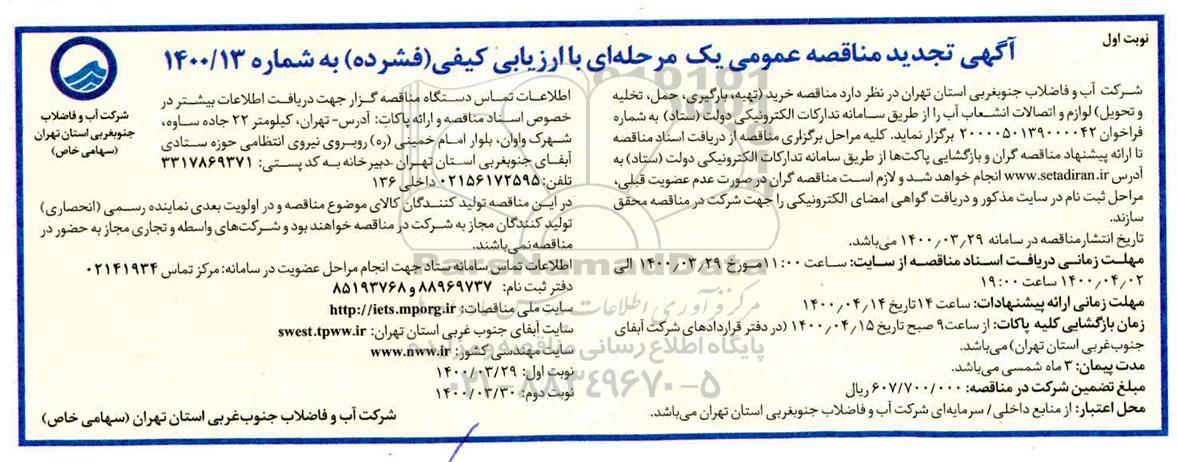 نوبت اول
آگهی تجدید مناقصه عمومی یک مرحله‌ای با ارزیابی کیفی(فشرده) به شماره ۱۴۰۰/۱۳
شرکت آب و فاضلاب
جنوبغربی استان تهران
(سهامی خاص)
شرکت آب و فاضلاب جنوبغربی استان تهران در نظر دارد مناقصه خرید (تهیه، بارگیری، حمل، تخلیه
و تحویل) لوازم و اتصالات انشعاب آب را از طریق سامانه تدارکات الکترونیکی دولت (ستاد) به شماره
فراخوان ۲۰۰۰۰۵۰۱۳۹۰۰۰۰۴۲ برگزار نماید. کلیه مراحل برگزاری مناقصه از دریافت اسناد مناقصه
تا ارائه پیشنهاد مناقصه گران و بازگشایی پاکت‌ها از طریق سامانه تدارکات الکترونیکی دولت (ستاد) به
آدرس www.setadiran.ir انجام خواهد شد و لازم است مناقصه گران در صورت عدم عضویت قبلی،
مراحل ثبت نام در سایت مذکور و دریافت گواهی امضای الکترونیکی را جهت شرکت در مناقصه محقق
سازند.
تاریخ انتشار مناقصه در سامانه ۱۴۰۰٫۰۳٫۲۹ می‌باشد.
مهلت زمانی دریافت اسناد مناقصه از سایت: ساعت ۱۱:۰۰ مورخ ۱۴۰۰٫۰۳٫۲۹ الی
۱۴۰۰٫۰۴٫۰۲ ساعت ۱۹:۰۰
مهلت زمانی ارائه پیشنهادات: ساعت ۱۴ تاریخ ۱۴۰۰٫۰۴٫۱۴
زمان بازگشایی کلیه پاکات: از ساعت ۹ صبح تاریخ ۱۴۰۰٫۰۴٫۱۵ (در دفتر قراردادهای شرکت آبفای
جنوب‌غربی استان تهران) می‌باشد.
مدت پیمان: ۳ ماه شمسی می‌باشد.
مبلغ تضمین شرکت در مناقصه: ۶۰۷/۷۰۰/۰۰۰ ریال
محل اعتبار: از منابع داخلی/ سرمایه‌ای شرکت آب و فاضلاب جنوبغربی استان تهران می‌باشد.
اطلاعات تماس دستگاه مناقصه گزار جهت دریافت اطلاعات بیشتر در
خصوص اسناد مناقصه و ارائه پاکات: آدرس- تهران، کیلومتر ۲۲ جاده ساوه،
شهرک واوان، بلوار امام خمینی (ره) روبروی نیروی انتظامی حوزه ستادی
آبفای جنوبغربی استان تهران -دبیرخانه به کد پستی: ۳۳۱۷۸۶۹۳۷۱
تلفن: ۰۲۱۵۶۱۷۲۵۹۵ داخلی ۱۳۶
در این مناقصه تولید کنندگان کالای موضوع مناقصه و در اولویت بعدی نماینده رسمی (انحصاری)
تولید کنندگان مجاز به شرکت در مناقصه خواهند بود و شرکت‌های واسطه و تجاری مجاز به حضور در
مناقصه نمی‌باشند.
اطلاعات تماس سامانه ستاد جهت انجام مراحل عضویت در سامانه: مرکز تماس ۰۲۱۴۱۹۳۴
دفتر ثبت نام: ۸۸۹۶۹۷۳۷ و ۸۵۱۹۳۷۶۸
سایت ملی مناقصات: http://iets.mporg.ir
سایت آبفای جنوب غربی استان تهران: swest.tpww.ir
سایت مهندسی کشور: www.nww.ir
نوبت اول: ۱۴۰۰/۰۳/۲۹
نوبت دوم: ۱۴۰۰/۰۳/۳۰
شرکت آب و فاضلاب جنوب‌غربی استان تهران (سهامی خاص)
ParsNamadData
پایگاه اطلاع رسانی مناقصه و مزایده
۰۲۱-۸۸۳۴۹۶۷۰-۵